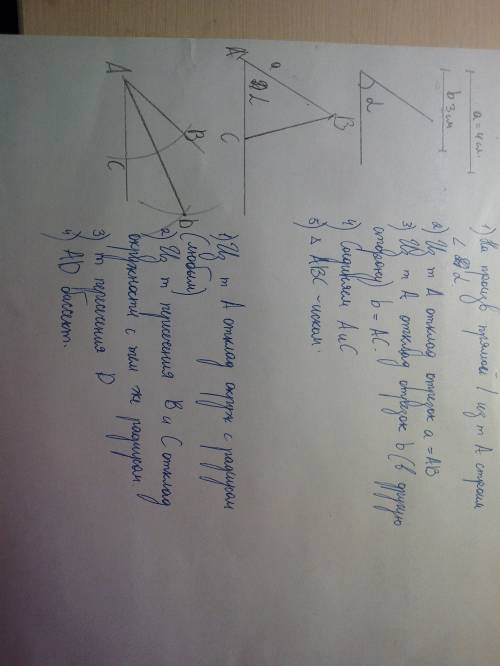 a = 4 см.
b 3 см
α
A
a
α
B
C
1) На произв прямой l из т A строим
∠ α
2) Из т A отклад отрезок a = AB
3) Из т A отклад отрезок b (в другую
сторону) b = AC.
4) Соединяем A и C
5) Δ ABC - иском.
A
B
C
D
1) Из т A отклад окруж с радиусом
(любым)
2) Из т пересечения B и C отклад
окружности с тем же радиусом.
3) т пересечения D
4) AD биссект.